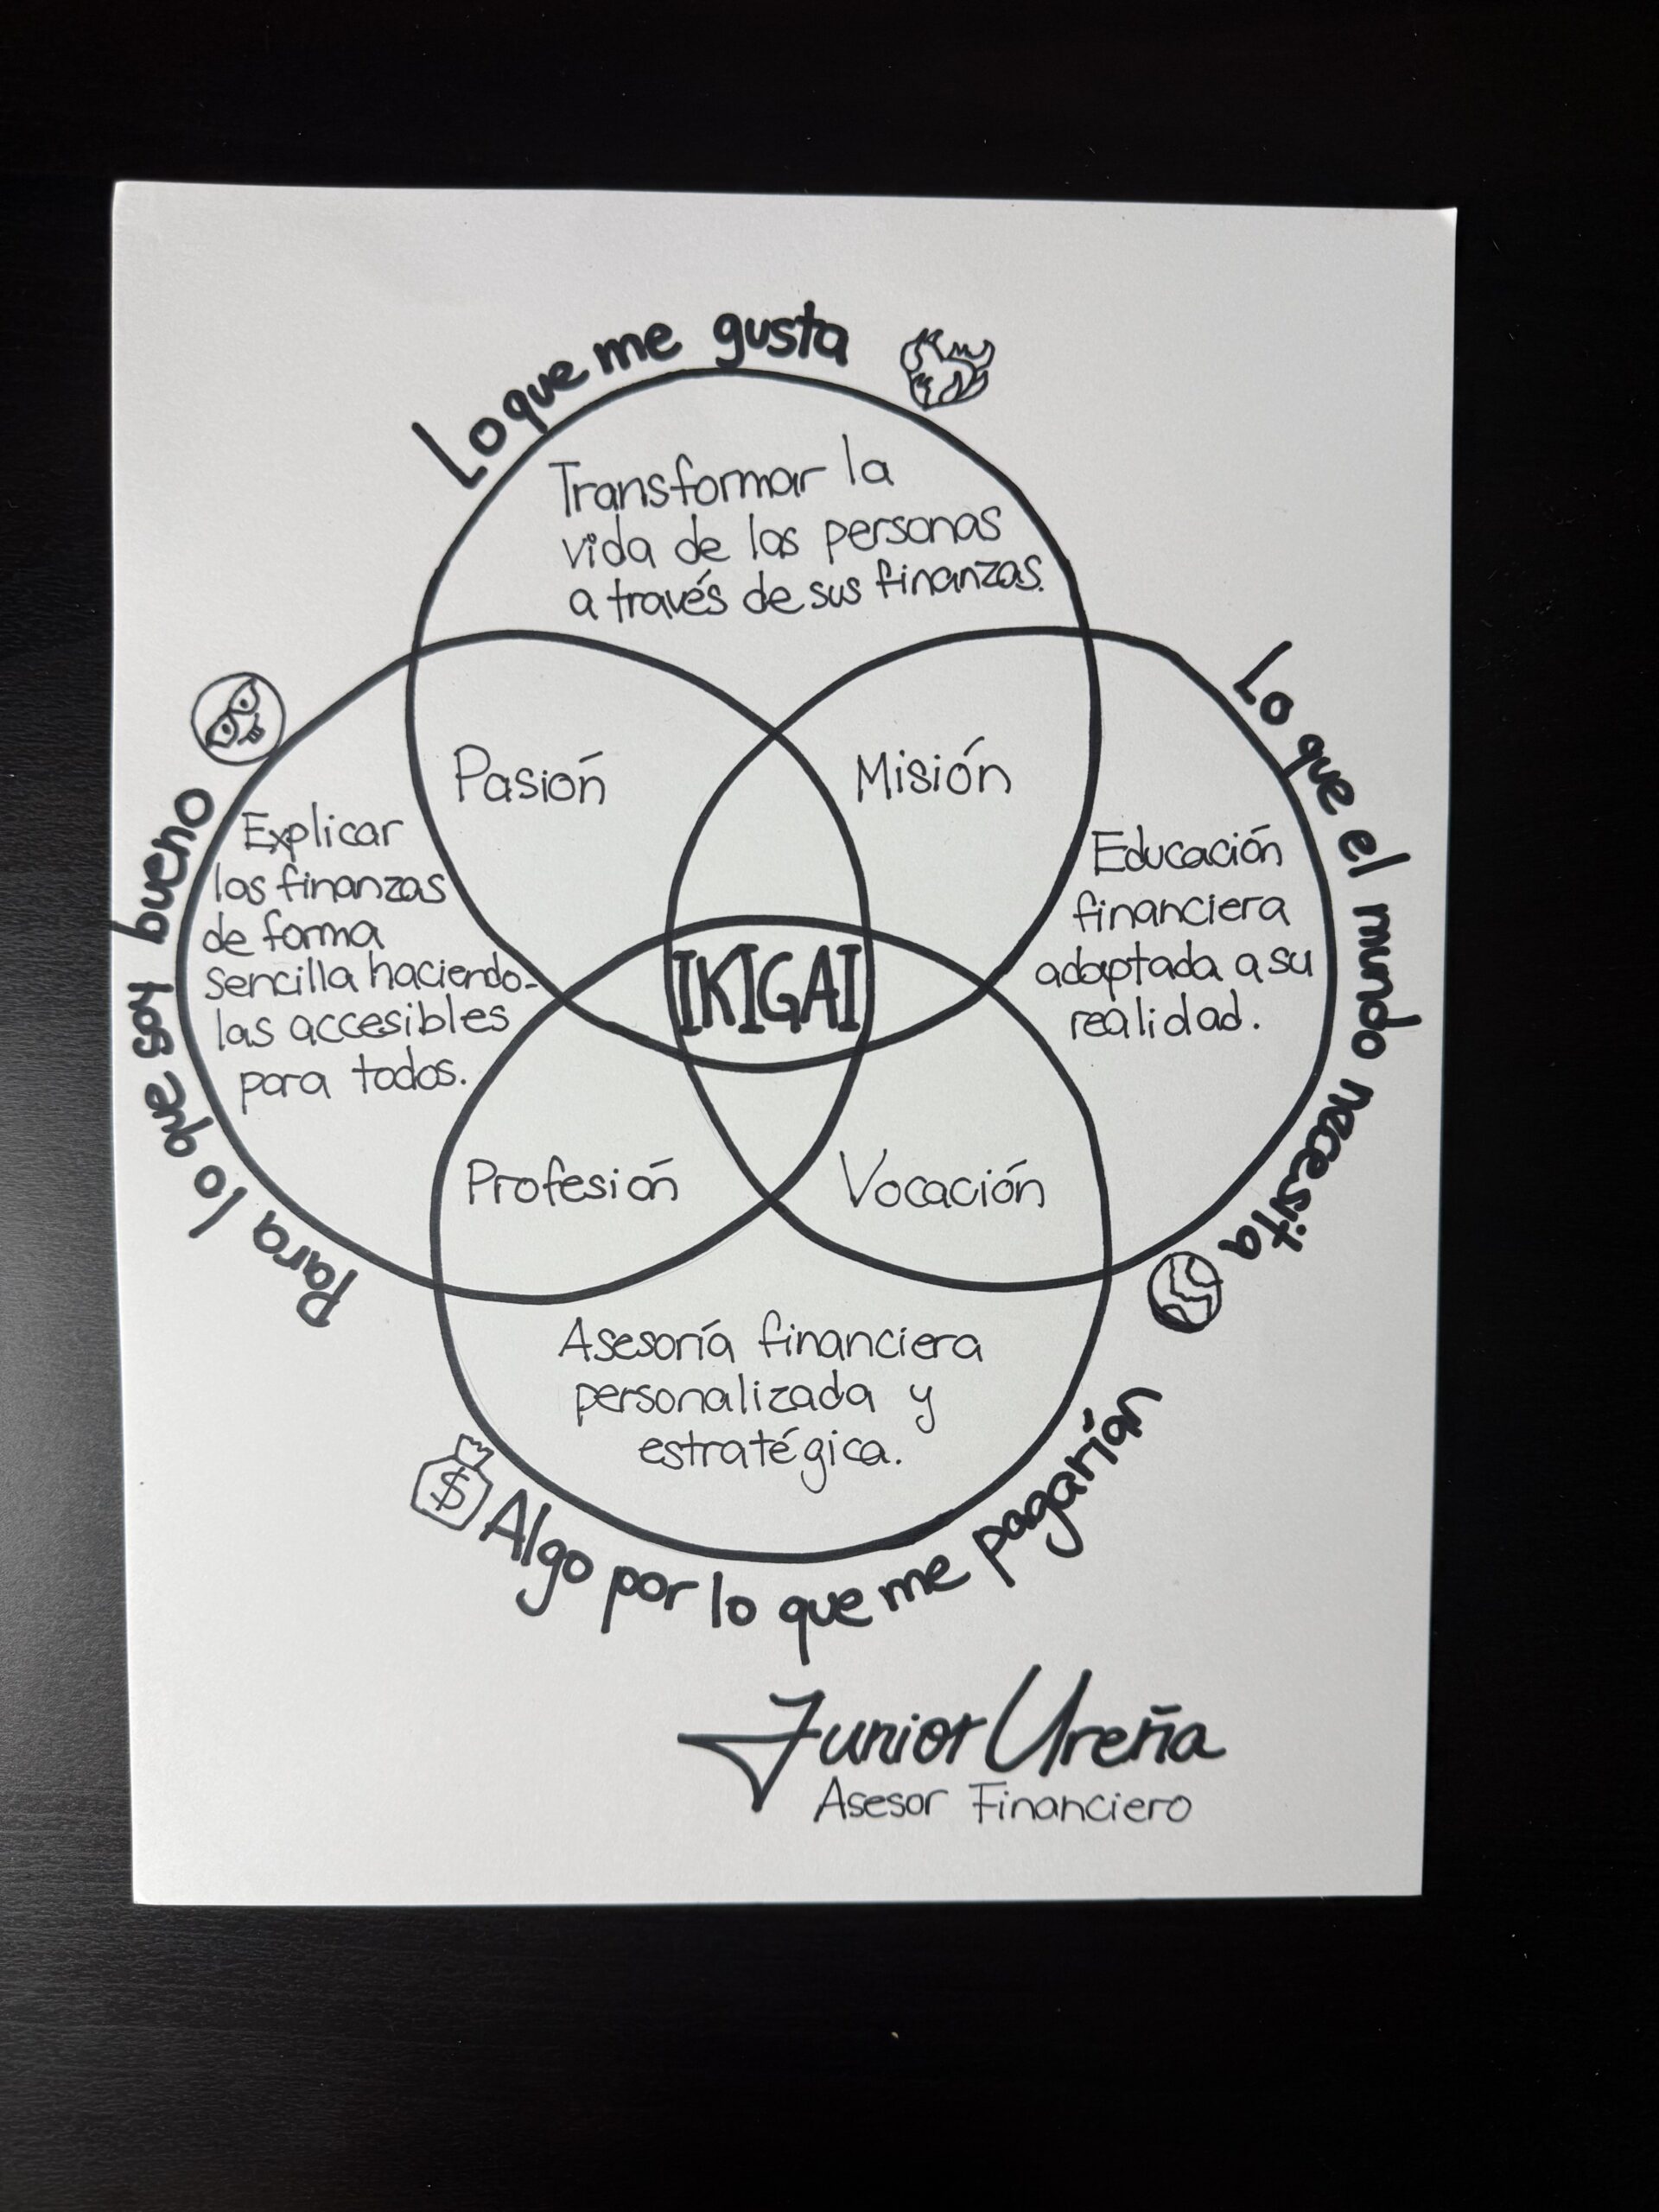 Lo que me gusta
Transformar la
vida de las personas
a través de sus finanzas.
Pasión
Misión
Para lo que soy bueno
Explicar
las finanzas
de forma
sencilla haciendo-
las accesibles
para todos.
Lo que el mundo necesita
Educación
financiera
adaptada a su
realidad.
IKIGAI
Profesión
Vocación
Asesoría financiera
personalizada y
estratégica.
$
Algo por lo que me pagarían
Junior Ureña
Asesor Financiero